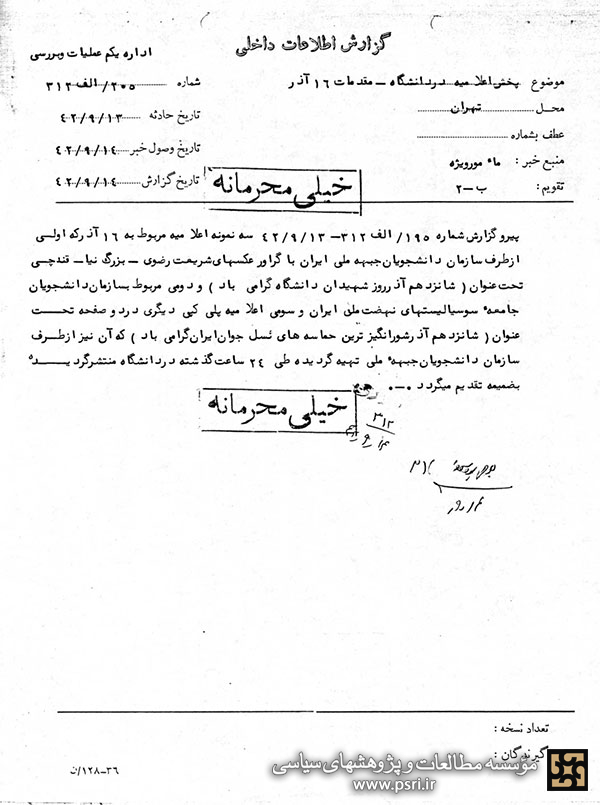 گزارش اطلاعات داخلی
اداره یکم عملیات وبررسی
موضوع پخش اعلا میه دردانشگاه – مقدمات ۱۶ آذر
شماره ۲۰۵/ الف ۳۱۲
محل تهران
تاریخ حادثه ۴۲/۹/۱۳
عطف بشماره
تاریخ وصول خبر ۴۲/۹/۱۴
منبع خبر : ماء مورویژه
تاریخ گزارش ۴۲/۹/۱۴
تقویم : ب-۲
خیلی محرمانه
پیرو گزارش شماره ۱۹۵/ الف ۳۱۲–۴۲/۹/۱۳ سه نمونه اعلا میه مربوط به ۱۶ آذر که اولی
ازطرف سازمان دانشجویان جبهه ملی ایران با گراور عکسهای شریعت رضوی – بزرگ نیا – قندچی
تحت عنوان ( شانزدهم آذر روز شهیدان دانشگاه گرامی باد ) و دومی مربوط بسازمان دانشجویان
جامعه سوسیالیستهای نهضت ملی ایران و سومی اعلا میه پلی کپی دیگری در دو صفحه تحت
عنوان ( شانزدهم آذر شورانگیز ترین حماسه های نسل جوان ایران گرامی باد ) که آن نیز ازطرف
سازمان دانشجویان جبهه ملی تهیه گردیده طی ۲۴ ساعت گذشته دردانشگاه منتشر گردیـــده
بضمیمه تقدیم میگردد .-.
خیلی محرمانه
۳۱۲
تعداد نسخه :
گیرندگان :
۳۶–۱۲۸/ن
مؤسسه مطالعات و پژوهشهای سیاسی
www.psri.ir